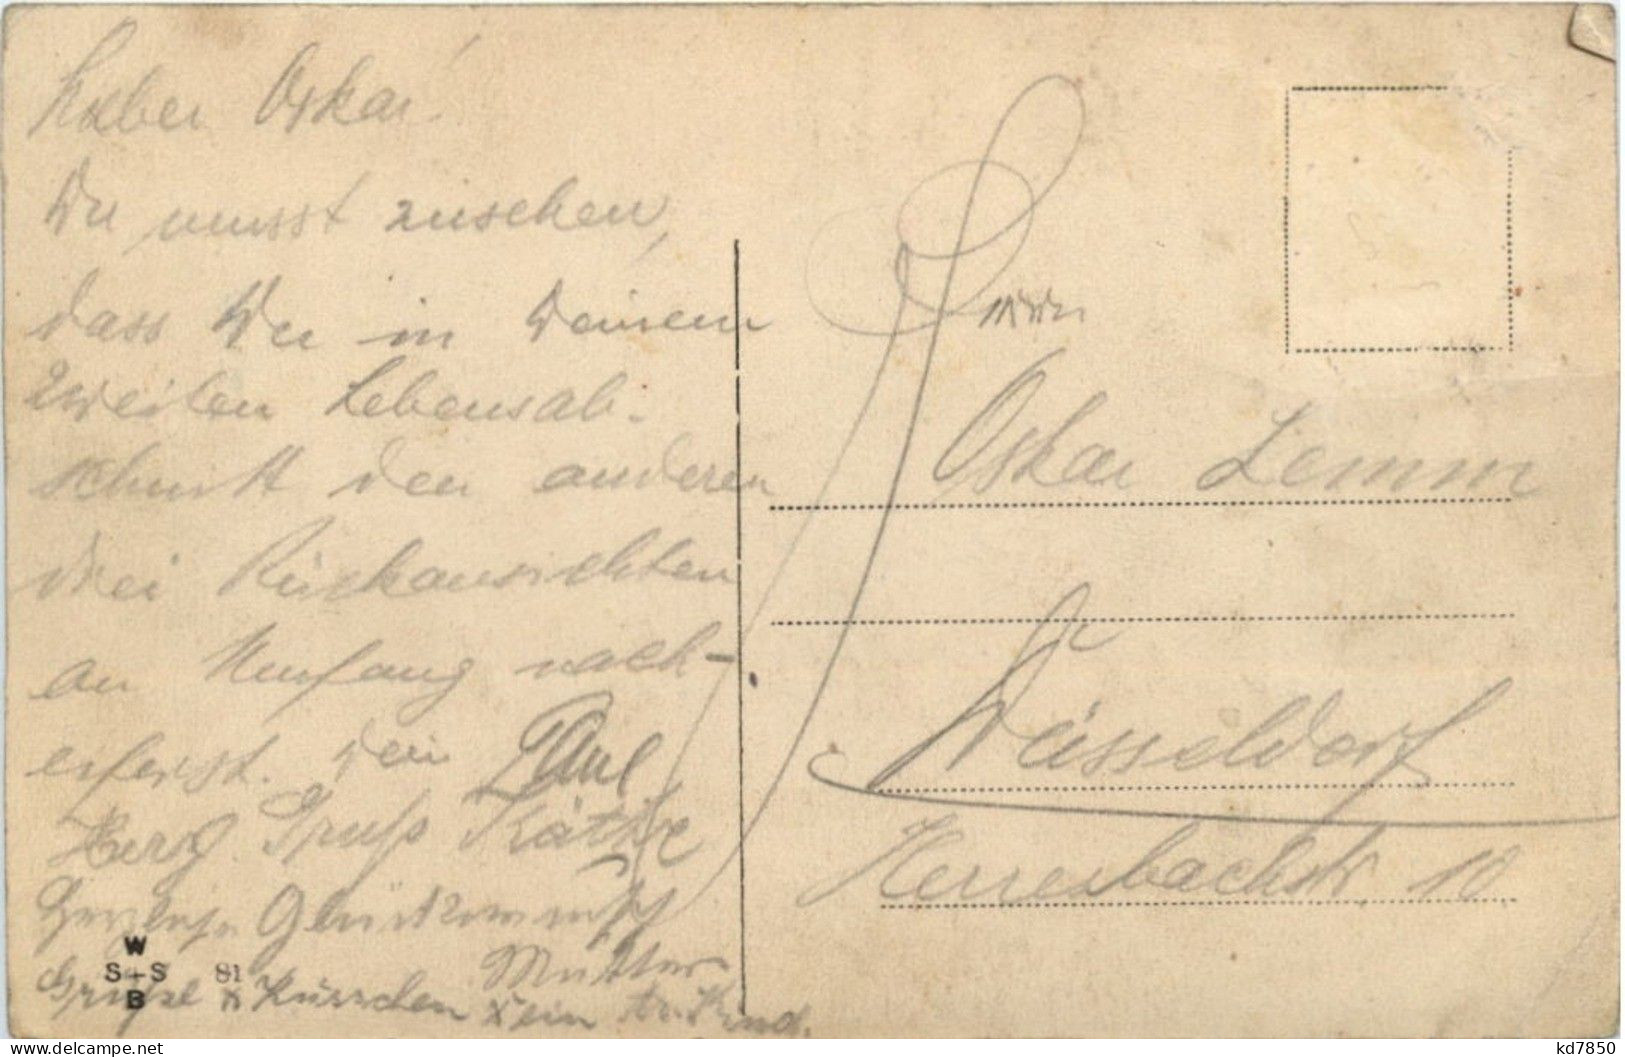 Lieber Oskar!
Du musst zusehen,
dass Du in Deinem
zweiten Lebensab-
schnitt den anderen
drei Rückansichten
an Umfang nach-
eiferst. Dein Paul
Herzl. Gruß Käthe
Herzlichn Glückwunsch
Mutter
Grüße & Küsschen
W
S+S 81
B
Herrn
Oskar Lemm
Düsseldorf
Herresbachstr 10
kd7850